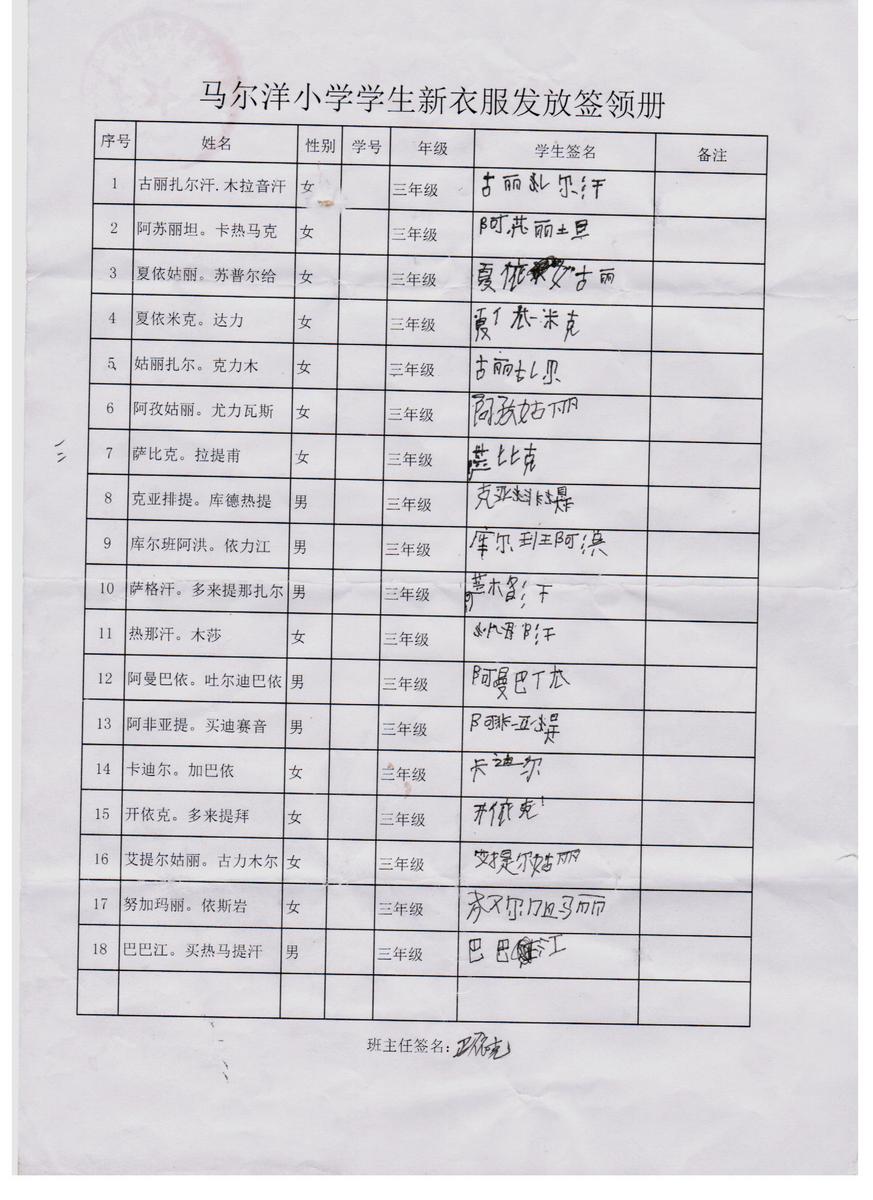 马尔洋小学学生新衣服发放签领册
序号 姓名 性别 学号 年级 学生签名 备注
1 古丽扎尔汗.木拉音汗 女 三年级 古丽扎尔汗
2 阿苏丽坦。卡热马克 女 三年级
3 夏依姑丽。苏普尔给 女 三年级 夏依古丽
4 夏依米克。达力 女 三年级 夏依米克
5 姑丽扎尔。克力木 女 三年级 古丽
6 阿孜姑丽。尤力瓦斯 女 三年级 阿孜姑丽
7 萨比克。拉提甫 女 三年级 比克
8 克亚排提。库德热提 男 三年级 克亚
9 库尔班阿洪。依力江 男 三年级 库尔班阿洪
10 萨格汗。多来提那扎尔 男 三年级
11 热那汗。木莎 女 三年级
12 阿曼巴依。吐尔迪巴依 男 三年级 阿曼巴依
13 阿非亚提。买迪赛音 男 三年级
14 卡迪尔。加巴依 女 三年级 卡迪尔
15 开依克。多来提拜 女 三年级 开依克
16 艾提尔姑丽。古力木尔 女 三年级 艾提尔姑丽
17 努加玛丽。依斯岩 女 三年级
18 巴巴江。买热马提汗 男 三年级 巴巴江
班主任签名: